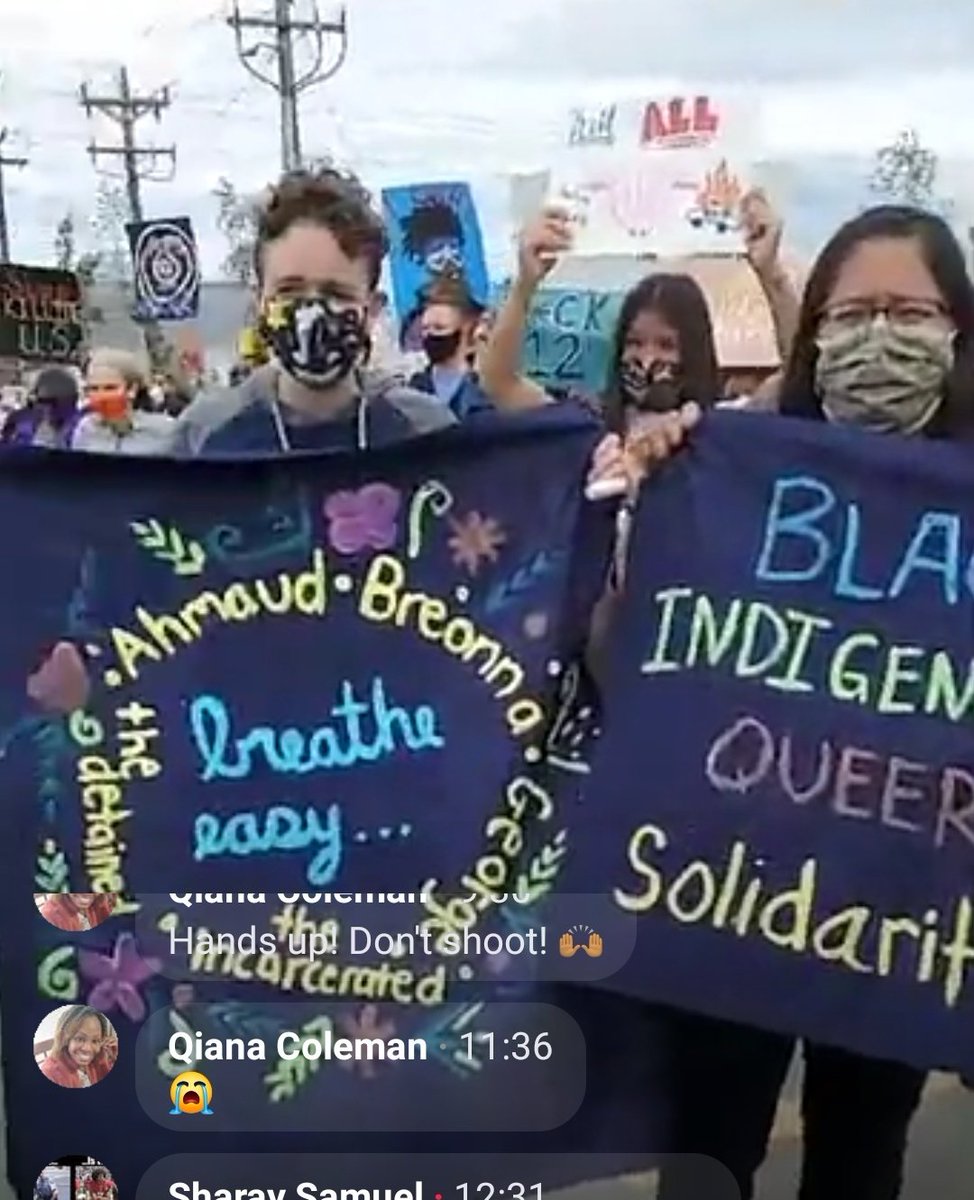 ALL
KILLING
U.S.
CK
12
Ahmaud · Breonna · George
the detained
the incarcerated
breathe
easy...
BLA
INDIGEN
QUEER
Solidarit
Qiana Coleman
Hands up! Don't shoot! 🙌🏾
Qiana Coleman · 11:36
😭
Sharay Samuel · 12:31